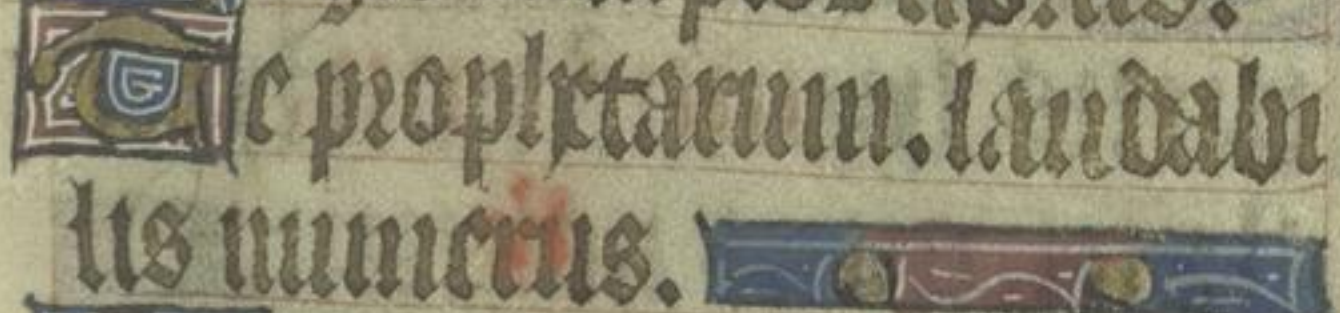 Te prophetarum. laudabi
lis numerus.